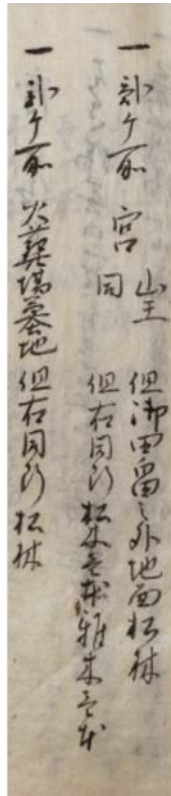 一 弐ケ所 宮 山王 但御田畠之外地面松林
同 但右同断 松木壱本雑木壱本
一 弐ケ所 火葬場墓地 但右同断松林